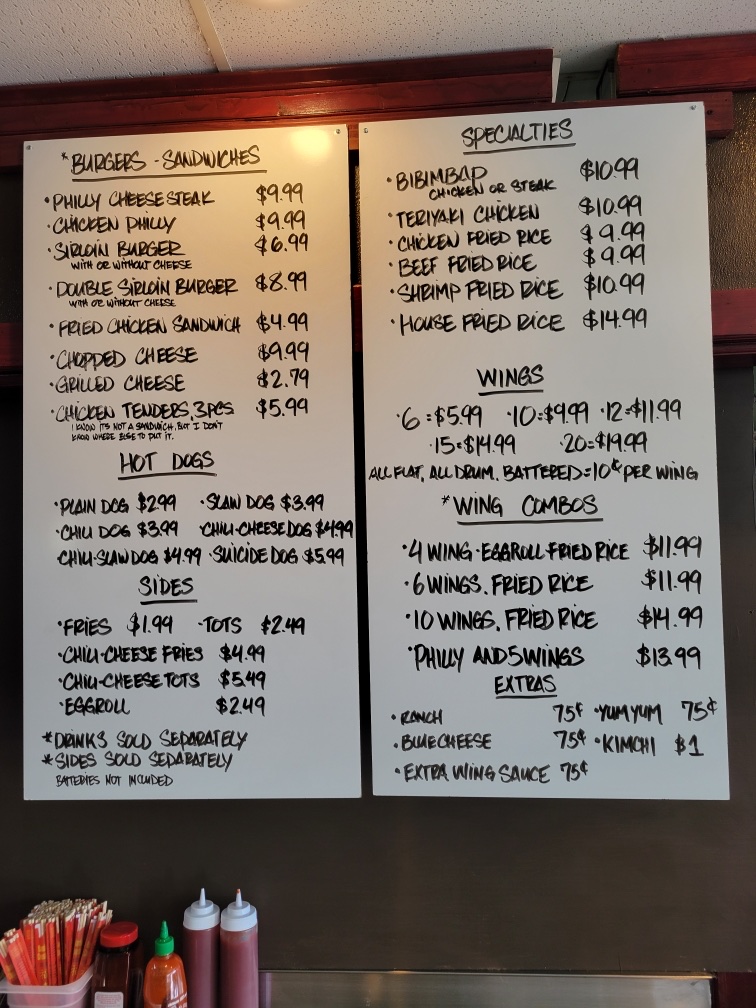 *BURGERS - SANDWICHES
•PHILLY CHEESESTEAK $9.99
•CHICKEN PHILLY $9.99
•SIRLOIN BURGER $6.99
WITH OR WITHOUT CHEESE
•DOUBLE SIRLOIN BURGER $8.99
WITH OR WITHOUT CHEESE
•FRIED CHICKEN SANDWICH $4.99
•CHOPPED CHEESE $9.99
•GRILLED CHEESE $2.79
•CHICKEN TENDERS, 3PCS $5.99
I KNOW ITS NOT A SANDWICH, BUT I DON'T
KNOW WHERE ELSE TO PUT IT.
HOT DOGS
•PLAIN DOG $2.99 •SLAW DOG $3.99
•CHILI DOG $3.99 •CHILI-CHEESE DOG $4.99
•CHILI-SLAW DOG $4.99 •SUICIDE DOG $5.99
SIDES
•FRIES $1.99 •TOTS $2.49
•CHILI-CHEESE FRIES $4.99
•CHILI-CHEESE TOTS $5.49
•EGGROLL $2.49
*DRINKS SOLD SEPARATELY
*SIDES SOLD SEPARATELY
BATTERIES NOT INCLUDED
SPECIALTIES
•BIBIMBAP $10.99
CHICKEN OR STEAK
•TERIYAKI CHICKEN $10.99
•CHICKEN FRIED RICE $9.99
•BEEF FRIED RICE $9.99
•SHRIMP FRIED RICE $10.99
•HOUSE FRIED RICE $14.99
WINGS
•6=$5.99 •10=$9.99 •12=$11.99
•15=$14.99 •20=$19.99
ALL FLAT, ALL DRUM, BATTERED=10¢ PER WING
*WING COMBOS
•4 WING-EGGROLL-FRIED RICE $11.99
•6 WINGS, FRIED RICE $11.99
•10 WINGS, FRIED RICE $14.99
•PHILLY AND 5 WINGS $13.99
EXTRAS
•RANCH 75¢ •YUM YUM 75¢
•BLUE CHEESE 75¢ •KIMCHI $1
•EXTRA WING SAUCE 75¢